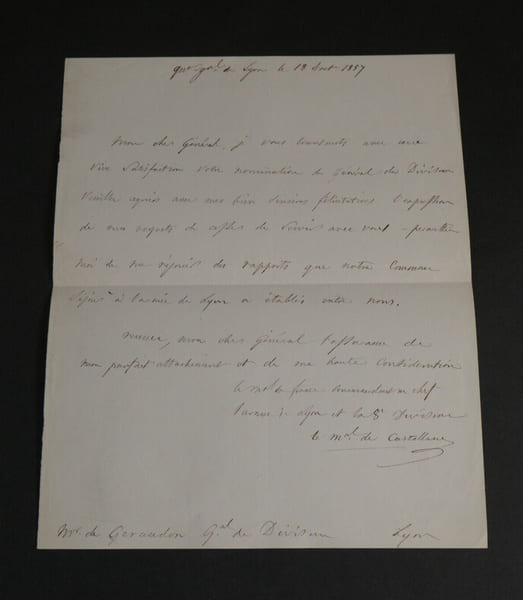 qer gral de Lyon le 18 Aout 1857
mon cher Général, je vous transmets avec une
vive satisfaction votre nomination de Général de Division
Veuillez agréer avec mes bien sincères félicitations l'expression
de mes regrets de cesser de servir avec vous - permettez
moi de me réjouir des rapports que notre Commun
séjour à l'armée de Lyon a établis entre nous.
recevez, mon cher Général l'assurance de
mon parfait attachement et de ma haute Considération
le mal de france commandant en chef
l'armée de Lyon et la 8e Division
le Mal de Castellane
Mr. de Geraudon Gal de Division Lyon